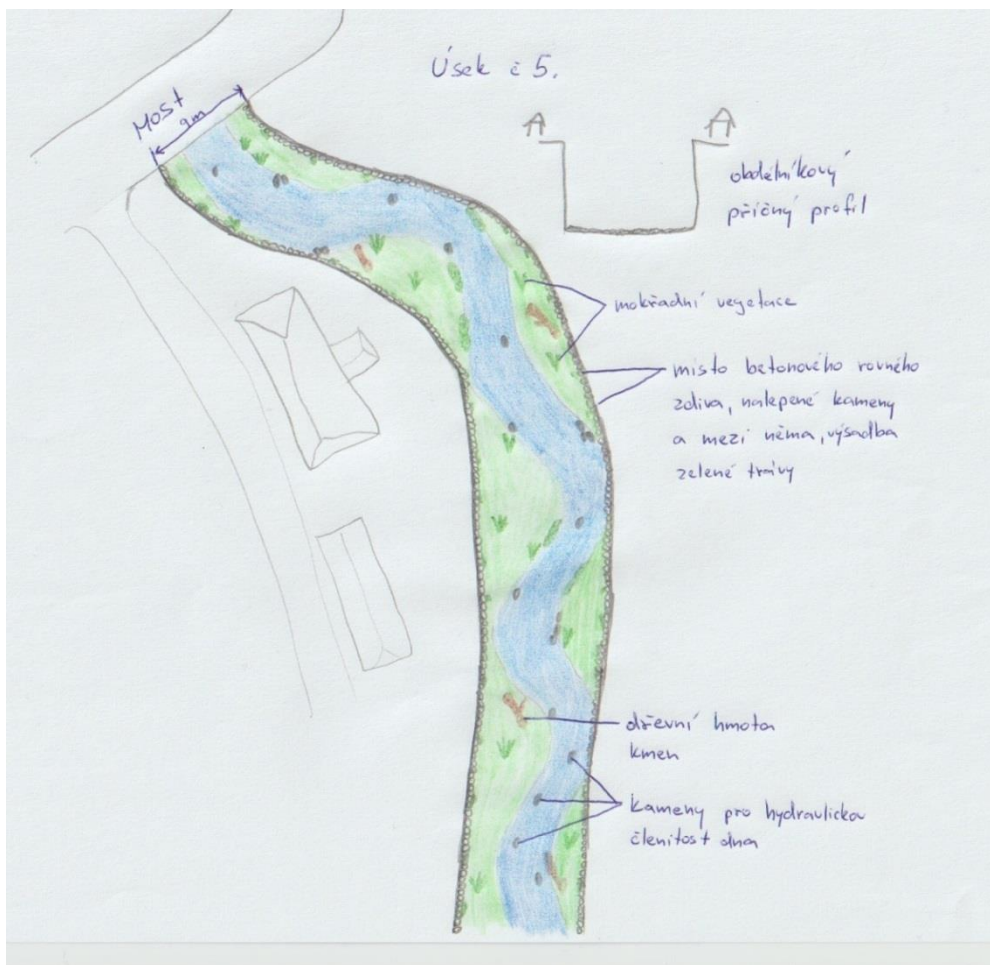 Úsek č 5.
Most
9m
A A
obdélníkový
příčný profil
mokřadní vegetace
místo betonového rovného
zdiva, nalepené kameny
a mezi něma, výsadba
zelené trávy
dřevní hmota
kmen
kameny pro hydraulickou
členitost dna